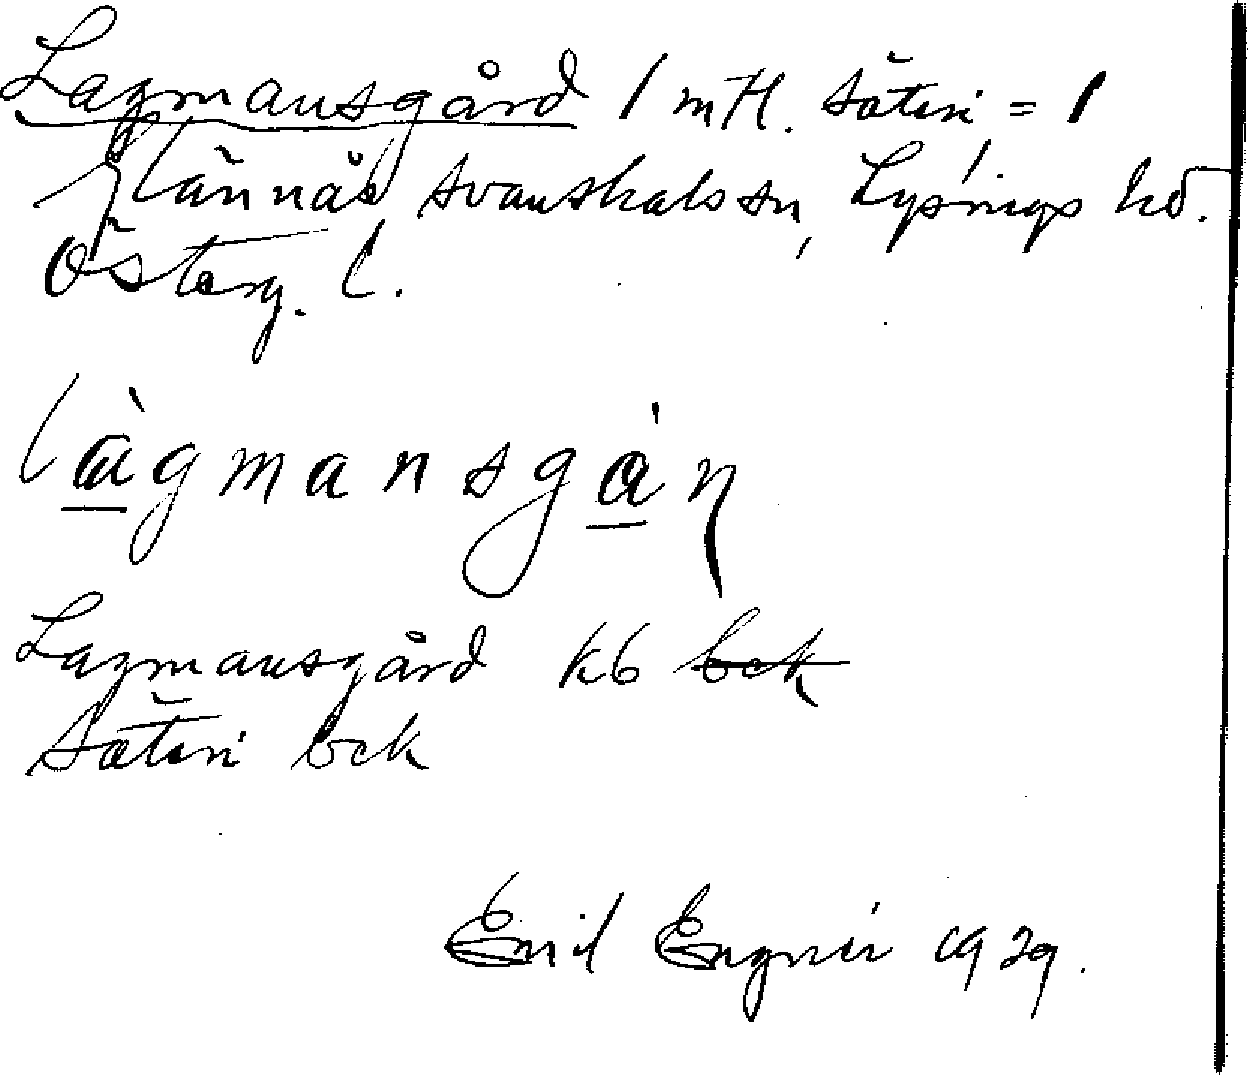 Lagmansgård 1 mtl. säteri = 1
Flännås Svanshals sn, Lysings hd.
Österg. l.
làgmansgán
Lagmansgård kb bck
Säteri bck
Emil Engnér 1929.